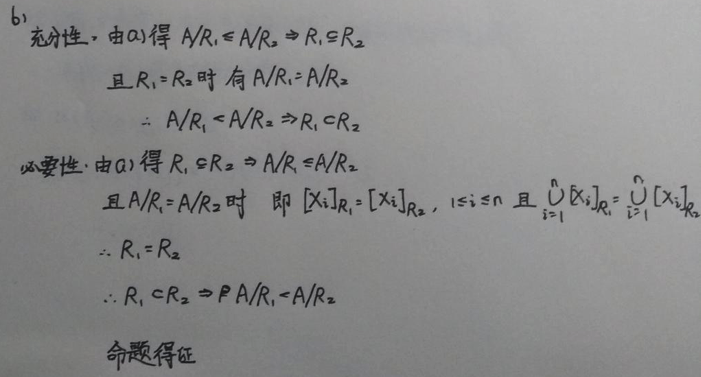 b)
充分性. 由a)得 A/R₁ ≤ A/R₂ ⇒ R₁ ⊆ R₂
且 R₁ = R₂ 时 有 A/R₁ = A/R₂
∴ A/R₁ < A/R₂ ⇒ R₁ ⊂ R₂
必要性. 由a)得 R₁ ⊆ R₂ ⇒ A/R₁ ≤ A/R₂
且 A/R₁ = A/R₂ 时 即 [Xi]R₁ = [Xi]R₂, 1≤i≤n 且 ⋃ⁿᵢ₌₁ [Xi]R₁ = ⋃ⁿᵢ₌₁ [Xi]R₂
∴ R₁ = R₂
∴ R₁ ⊂ R₂ ⇒ A/R₁ < A/R₂
命题得证